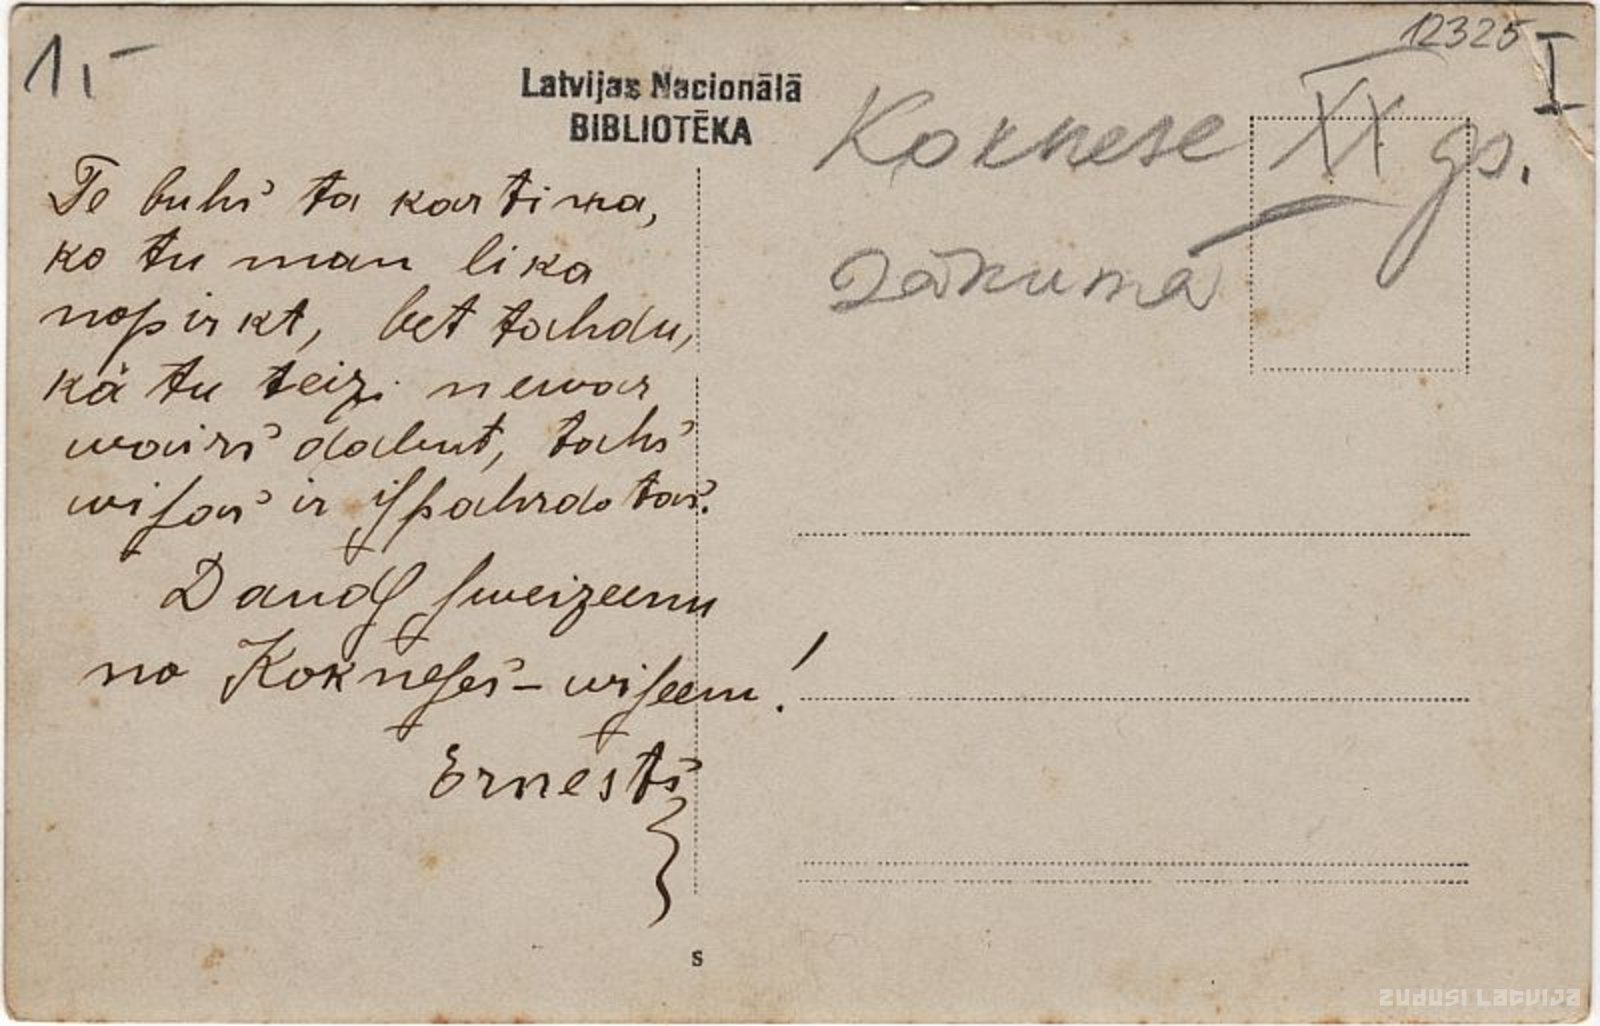 1,-
Latvijas Nacionālā
BIBLIOTĒKA
12325
I
Koknese XX gs.
sākumā
Te buhs ta kartiņa,
ko tu man lika
nopirkt, bet tahdu,
kā tu teizi newar
wairs dabut, tahs
wiſas ir iſpahrdotas.
Daudſ ſweizeenu
no Kokneſes – wiſeem!
Ernests
s
zudusi Latvija